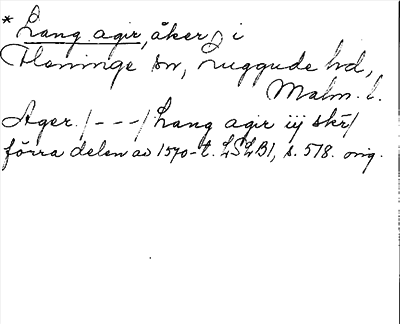 * Lang agir, åker, i
Fleninge sn, Luggude hd,
Malm. l.
Ager. /---/ Lang agir iij skr/
förra delen av 1570-t. LSLB1, s. 578. orig.